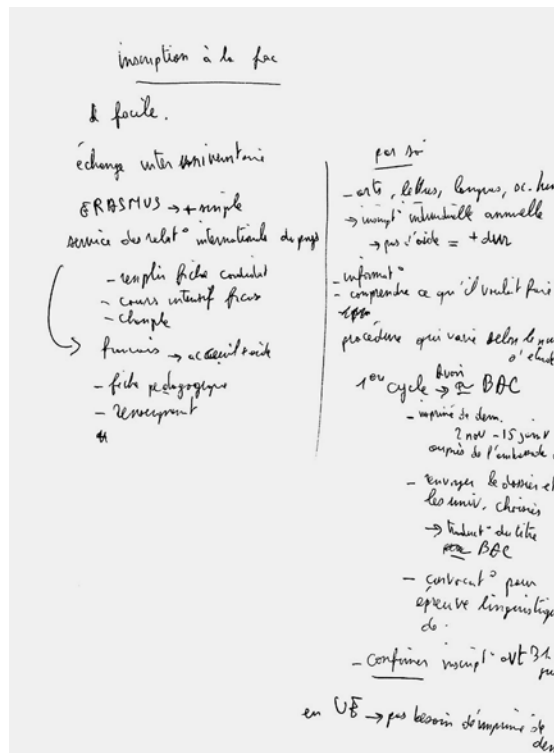 inscription à la fac
facile.
échange inter universitaire
ERASMUS → + simple
service des relat° internationale du pays
- remplir fiche candidat
- cours intensif
français → accueil + aide
- fiche pédagogique
par soi
- arts, lettres, langues, sc. hum
→ inscript° individuelle annuelle
→ pas d'aide = + dur
- informat°
- comprendre ce qu'il voulait faire
procédure qui varie selon le
d'étud
1er cycle → Avoir BAC
- imprimé de dem.
2 nov - 15 janv
auprès de l'ambassade
- envoyer le dossier et
les univ. choisies
→ traduct° du titre
BAC
- convocat° pour
épreuve linguistique
de.
- confirmer inscript° avt 31
en UE → pas besoin d'imprimé de
dem